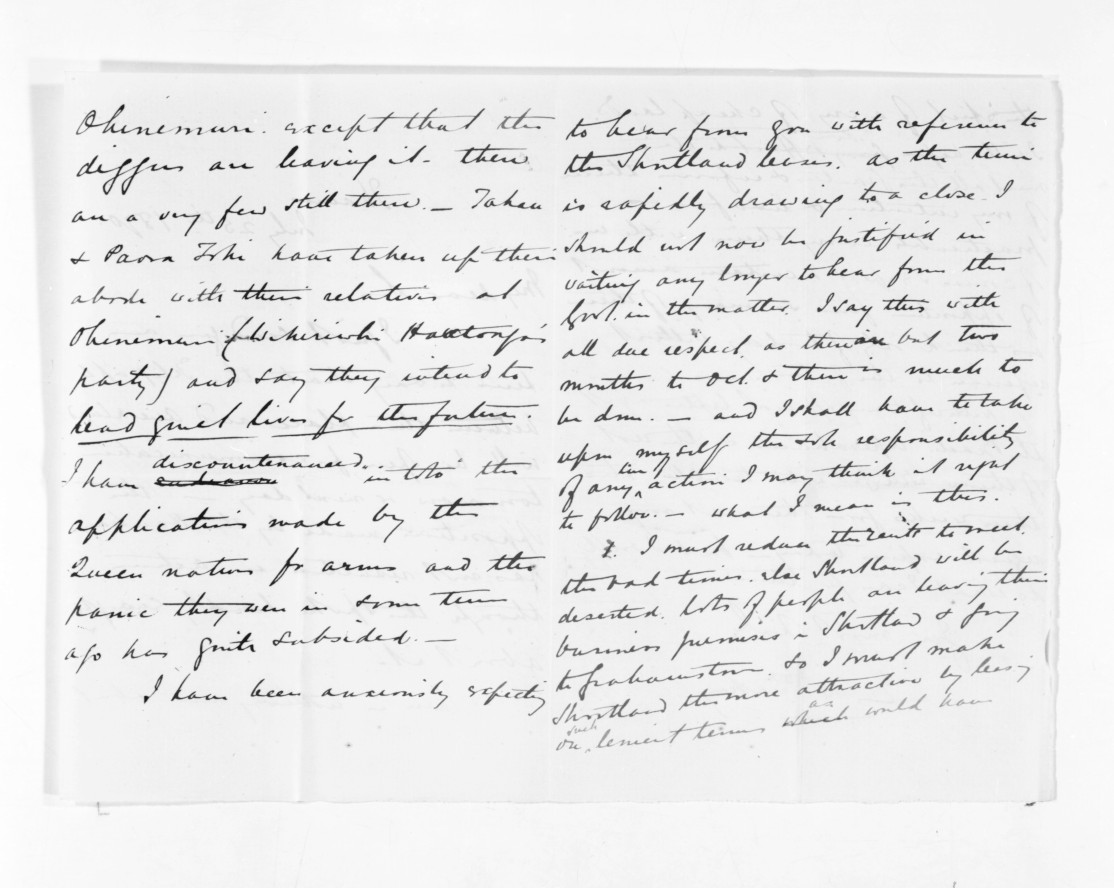 Ohinemuri. except that the
diggers are leaving it - there
are a very few still there. — Taken
& Paora Toki have taken up their
abode with their relatives at
Ohinemuri (Wikiriwhi Hautonga's
party) and say they intend to
lead quiet lives for the future.
I have discountenanced in toto the
applications made by the
Queen natives for arms and the
panic they were in some time
ago has quite subsided. —
I have been anxiously expecting
to hear from you with reference to
the Shortland leases. as the time
is rapidly drawing to a close. I
should not now be justified in
waiting any longer to hear from the
Govt. in the matter. I say this with
all due respect. as there are but two
months to Oct. & there is much to
be done. — and I shall have to take
upon myself the sole responsibility
of any line action I may think it right
to follow. — what I mean is this.
I must reduce the rents to meet
the bad times. else Shortland will be
deserted. lots of people are leaving their
business premises in Shortland & going
to Grahamstown. so I must make
Shortland the more attractive by leasing
on such lenient terms as would have